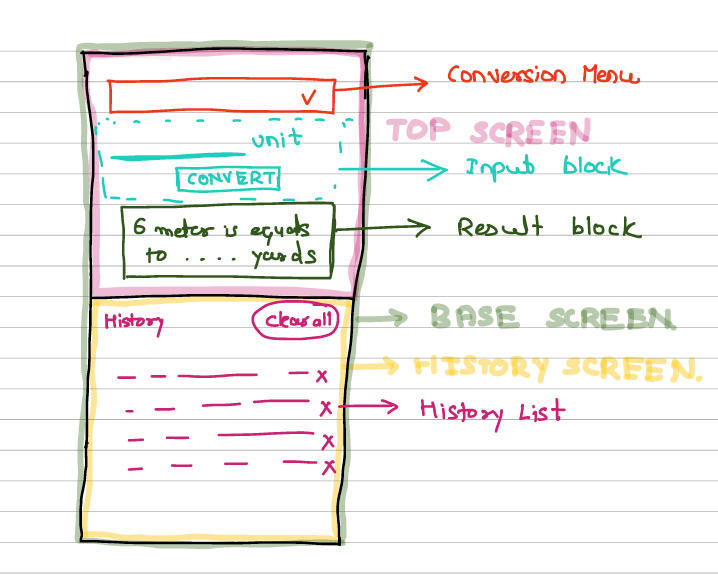 Conversion Menu
TOP SCREEN
unit
CONVERT
Input block
6 meter is equals
to .... yards
Result block
History
Clear all
BASE SCREEN.
HISTORY SCREEN.
x
x
History List
x
x